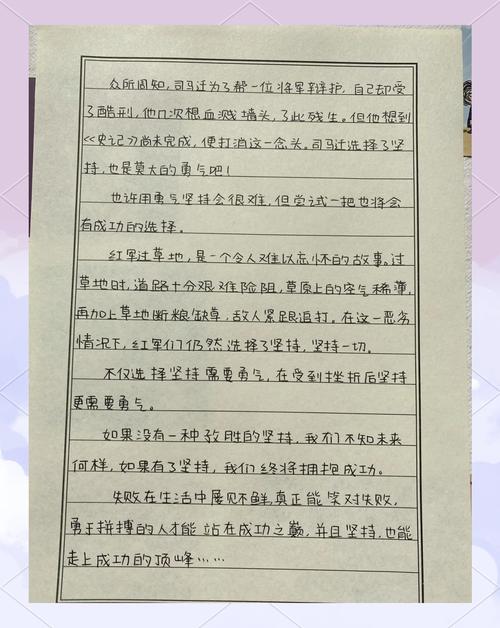 众所周知,司马迁为了帮一位将军辩护,自己却受
了酷刑,他几次想血溅墙头,了此残生。但他想到
《史记》尚未完成,便打消这一念头。司马迁选择了坚
持,也是莫大的勇气吧!
也许用勇气坚持会很难,但尝试一把也将会
有成功的选择。
红军过草地,是一个令人难以忘怀的故事。过
草地时,道路十分艰难险阻,草原上的空气稀薄,
再加上草地断粮缺草,敌人紧跟追打。在这一恶劣
情况下,红军们仍然选择了坚持,坚持一切。
不仅选择坚持需要勇气,在受到挫折后坚持
更需要勇气。
如果没有一种致胜的坚持,我们不知未来
何样,如果有了坚持,我们终将拥抱成功。
失败在生活中屡见不鲜,真正能笑对失败,
勇于拼搏的人才能站在成功之巅,并且坚持,也能
走上成功的顶峰……